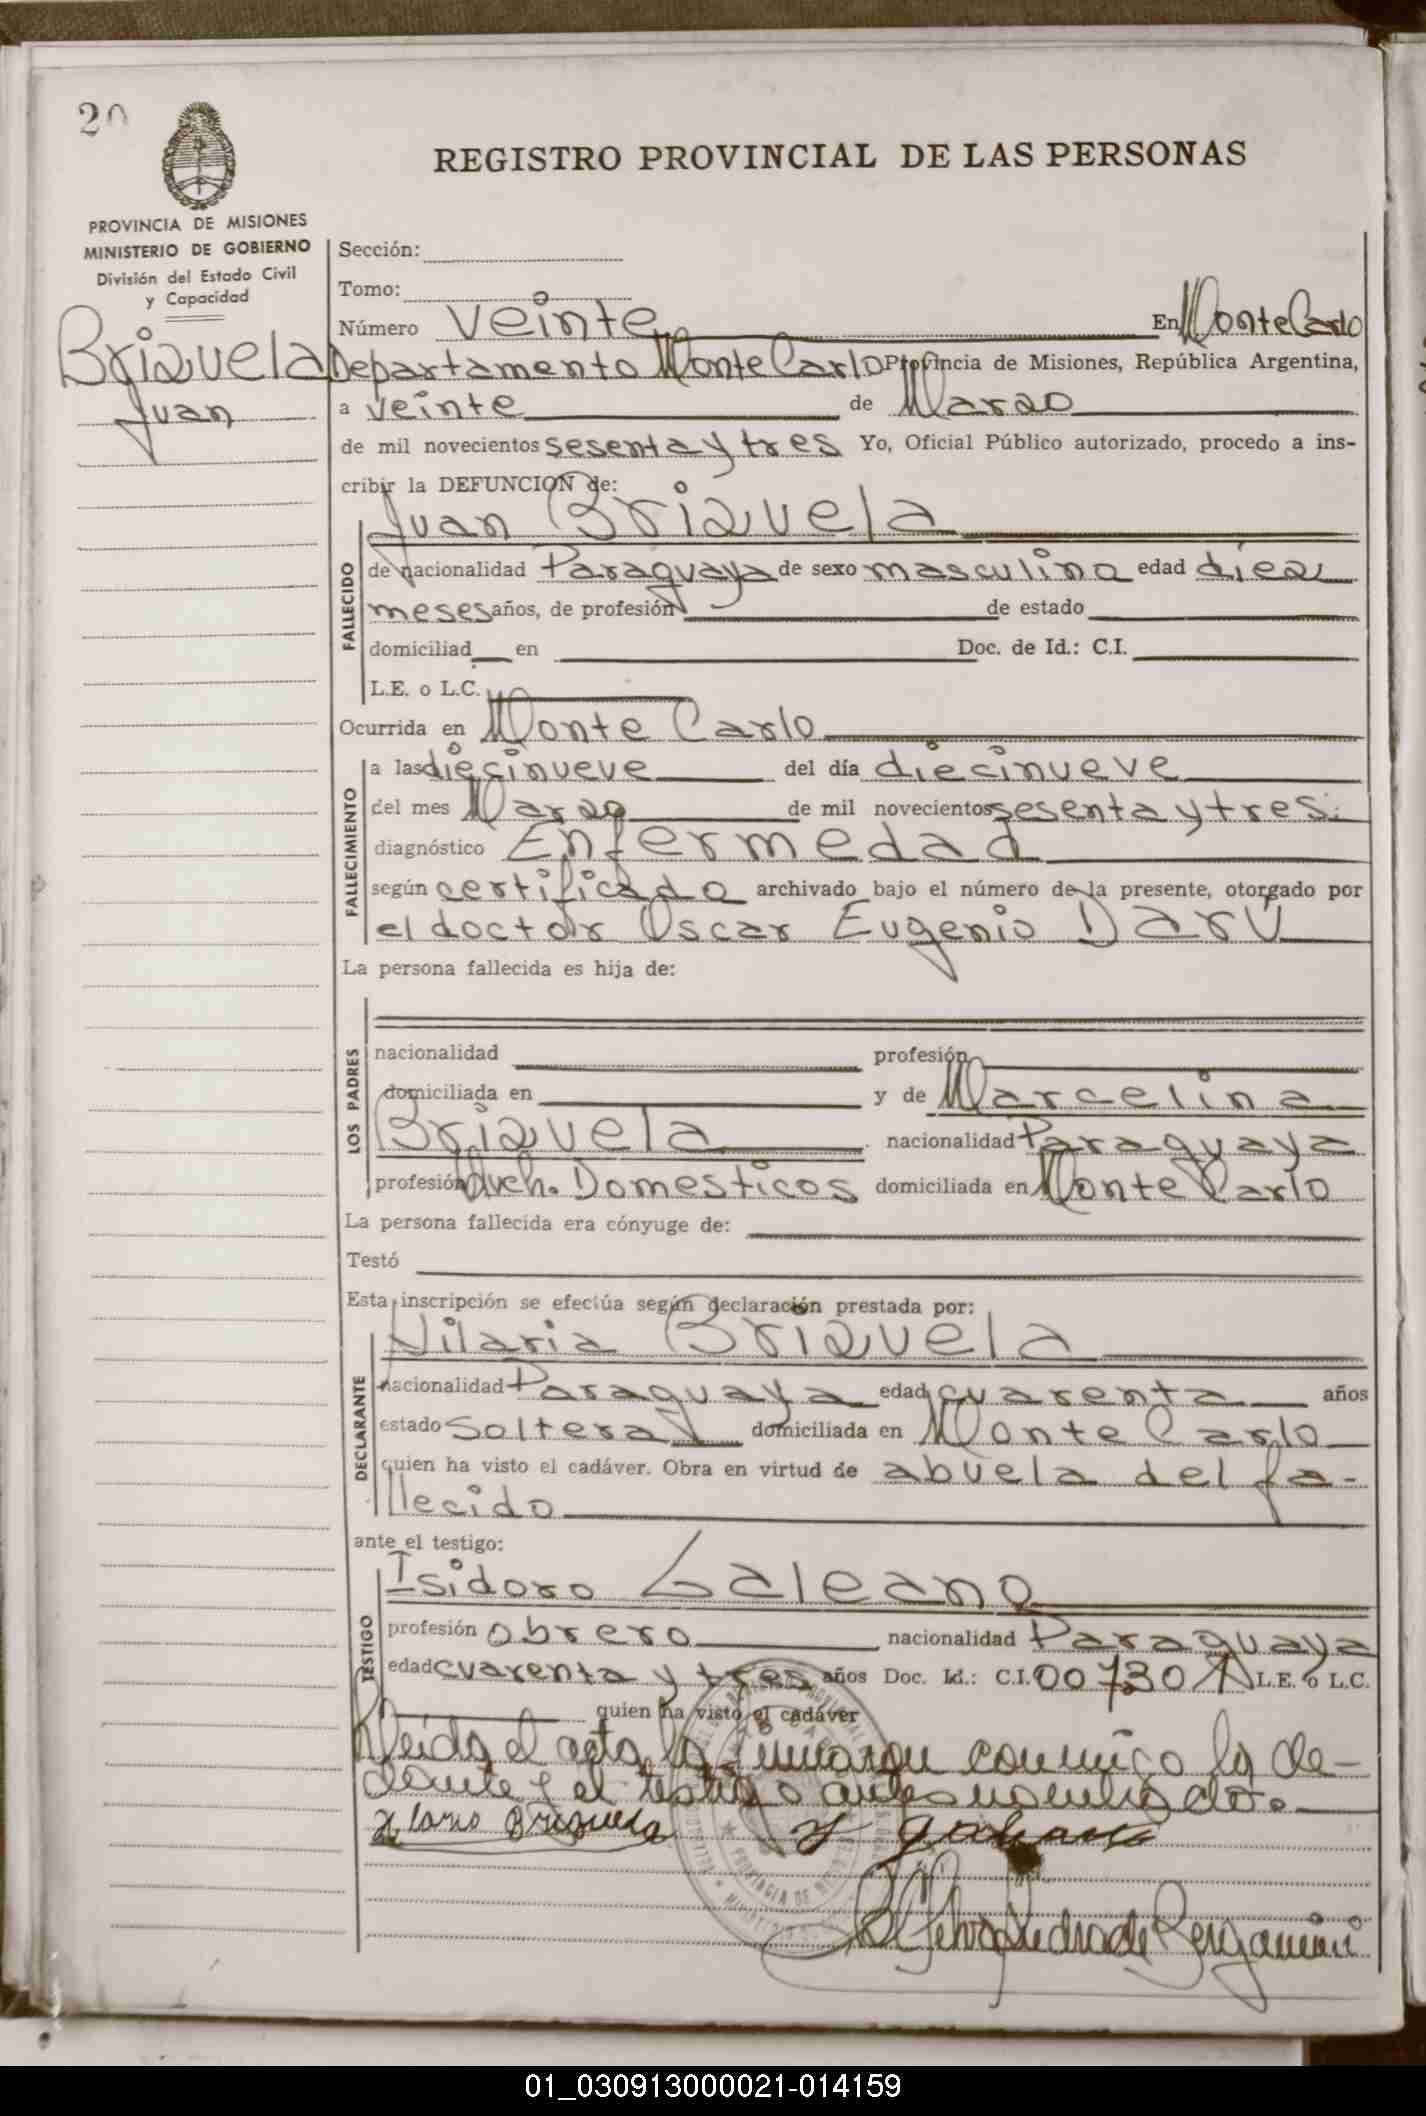 20
REGISTRO PROVINCIAL DE LAS PERSONAS
PROVINCIA DE MISIONES
MINISTERIO DE GOBIERNO
División del Estado Civil
y Capacidad
Briquela
Juan
Sección:
Tomo:
Número veinte En Monte Carlo
Departamento Monte Carlo Provincia de Misiones, República Argentina,
a veinte de Marzo
de mil novecientos sesenta y tres Yo, Oficial Público autorizado, procedo a ins-
cribir la DEFUNCION de:
Juan Briquela
FALLECIDO
de nacionalidad Paraguaya de sexo masculino edad díez
meses años, de profesión de estado
domiciliad en Doc. de Id.: C.I.
L.E. o L.C.
Ocurrida en Monte Carlo
FALLECIMIENTO
a las diecinueve del día diecinueve
del mes Marzo de mil novecientos sesenta y tres.
diagnóstico Enfermedad
según certificado archivado bajo el número de la presente, otorgado por
el doctor Oscar Eugenio Darú
La persona fallecida es hija de:
LOS PADRES
nacionalidad profesión
domiciliada en y de Marcelina
Briquela nacionalidad Paraguaya
profesión Queh. Domesticos domiciliada en Monte Carlo
La persona fallecida era cónyuge de:
Testó
Esta inscripción se efectúa según declaración prestada por:
DECLARANTE
Hilaria Briquela
nacionalidad Paraguaya edad cuarenta años
estado Soltera domiciliada en Monte Carlo
quien ha visto el cadáver. Obra en virtud de abuela del fa-
llecido
ante el testigo:
TESTIGO
Isidoro Galeano
profesión obrero nacionalidad Paraguaya
edad cuarenta y tres años Doc. Id.: C.I. 007301 L.E. o L.C.
quien ha visto el cadáver
leída el acta la firmaron conmigo la de-
clarante y el testigo antes nombrado.
PROVINCIA DE MISIONES
01_030913000021-014159